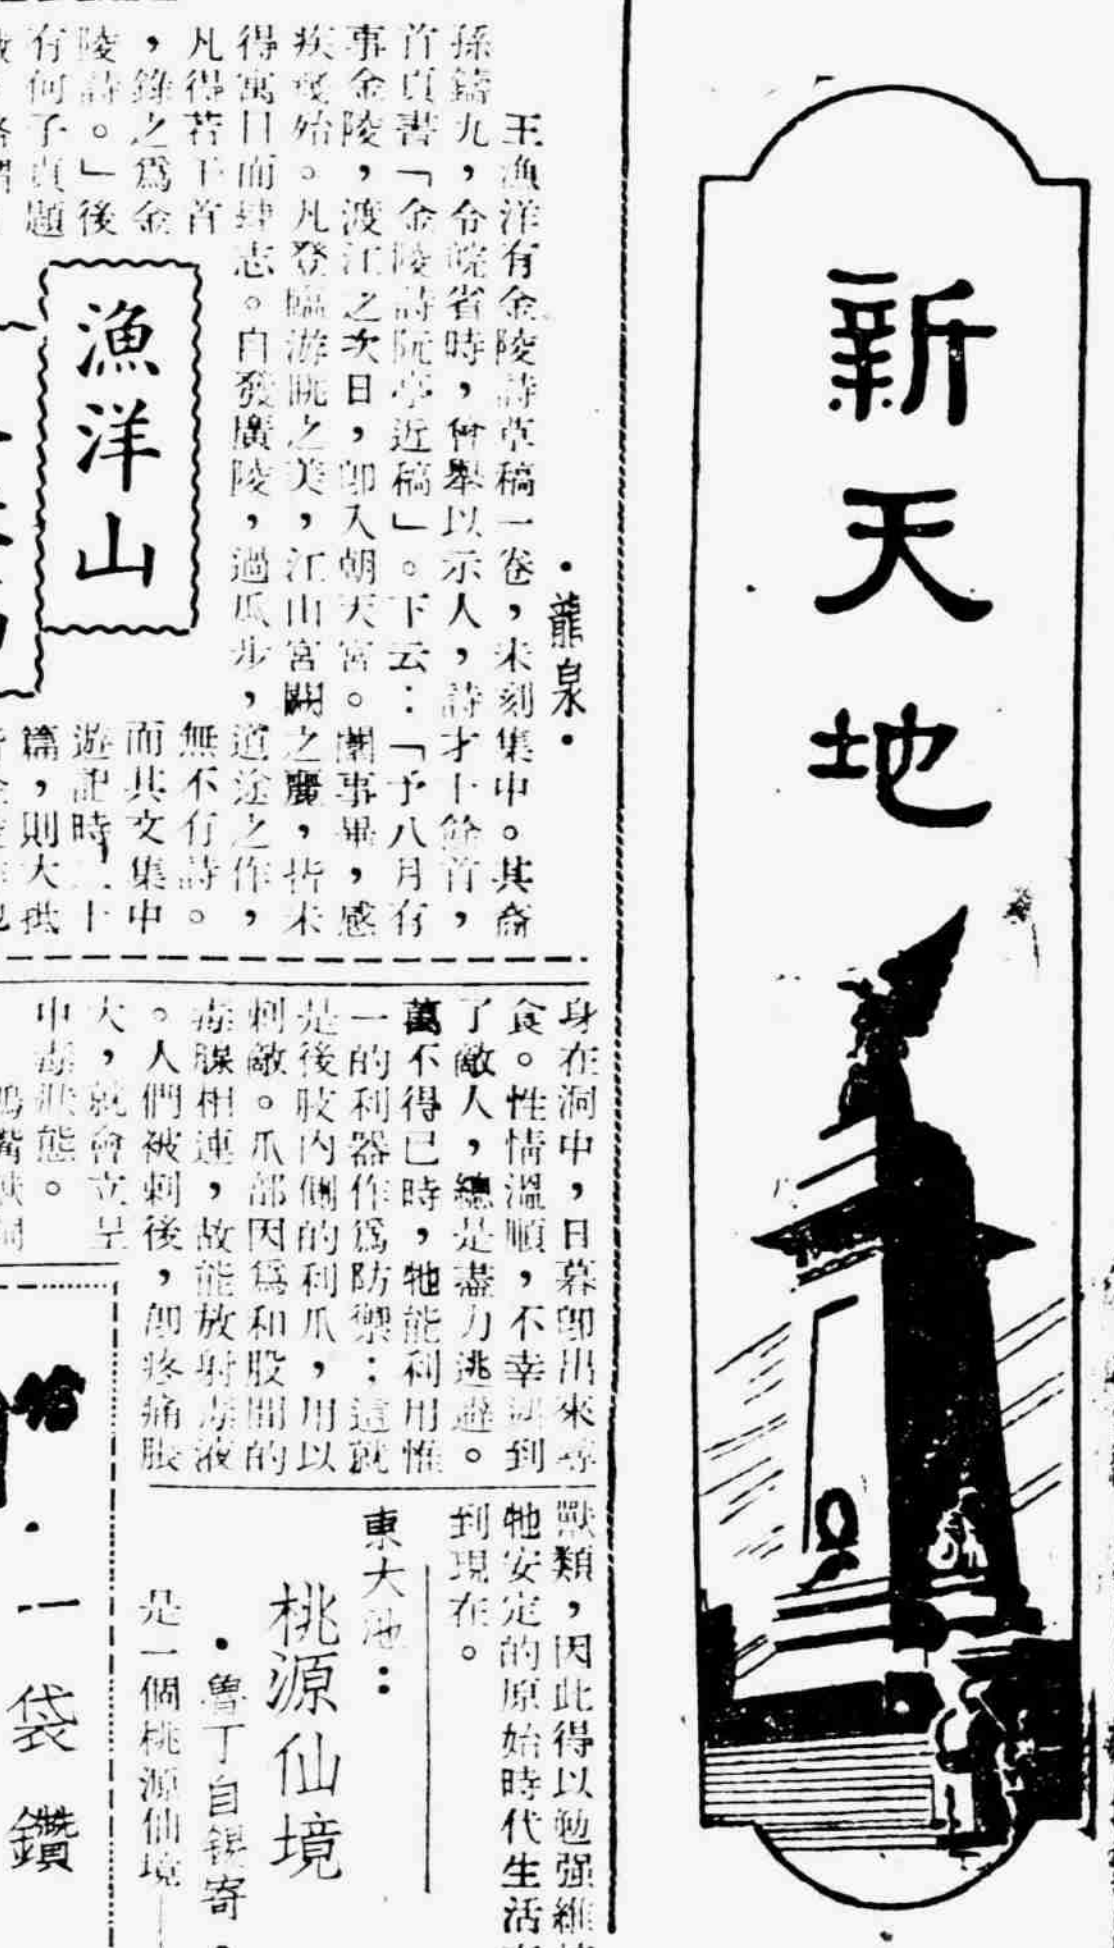 新天地
・龍泉・
王漁洋有金陵詩草稿一卷，未刻集中。其裔
孫鑄九，令皖省時，曾舉以示人，詩才十餘首，
首頁書「金陵詩阮亭近稿」。下云：「予八月有
事金陵，渡江之次日，卽入朝天宮。闈事畢，感
疾幾始。凡登臨游眺之美，江山宮闕之麗，皆未
得寓目而肆志。自發廣陵，過瓜步，道途之作，
凡得若干首
無不有詩。
，錄之爲金
而其文集中
陵詩。」後
遊記時
有何子貞題
篇，則大抵
漁洋山
身在洞中，日暮卽出來尋
食。性情溫順，不幸遇到
了敵人，總是盡力逃避。
萬不得已時，牠能利用惟
一的利器作爲防禦；這就
是後肢內側的利爪，用以
刺敵。爪部因爲和股間的
毒腺相連，故能放射毒液
。人們被刺後，卽疼痛脹
大，就會立呈
中毒狀態。
獸類，因此得以勉强維
牠安定的原始時代生活
到現在。
東大池：
桃源仙境
・魯丁自錫寄・
是一個桃源仙境
・一袋鑽